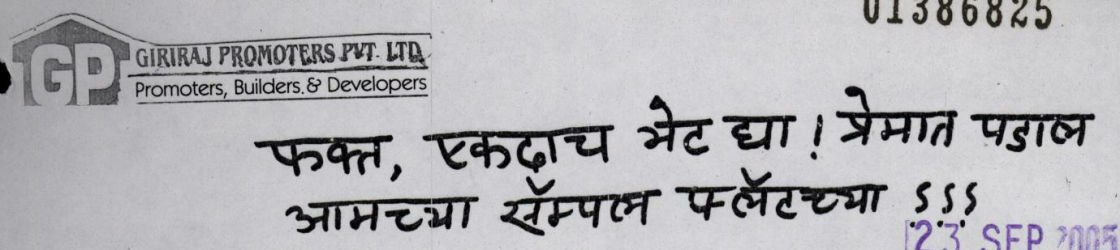 01386825
GP
GIRIRAJ PROMOTERS PVT. LTD.
Promoters, Builders, & Developers
फक्त, एकदाच भेट द्या ! प्रेमात पडाल
आमच्या सॅम्पल फ्लॅटच्या ! ! !
23 SEP 2005